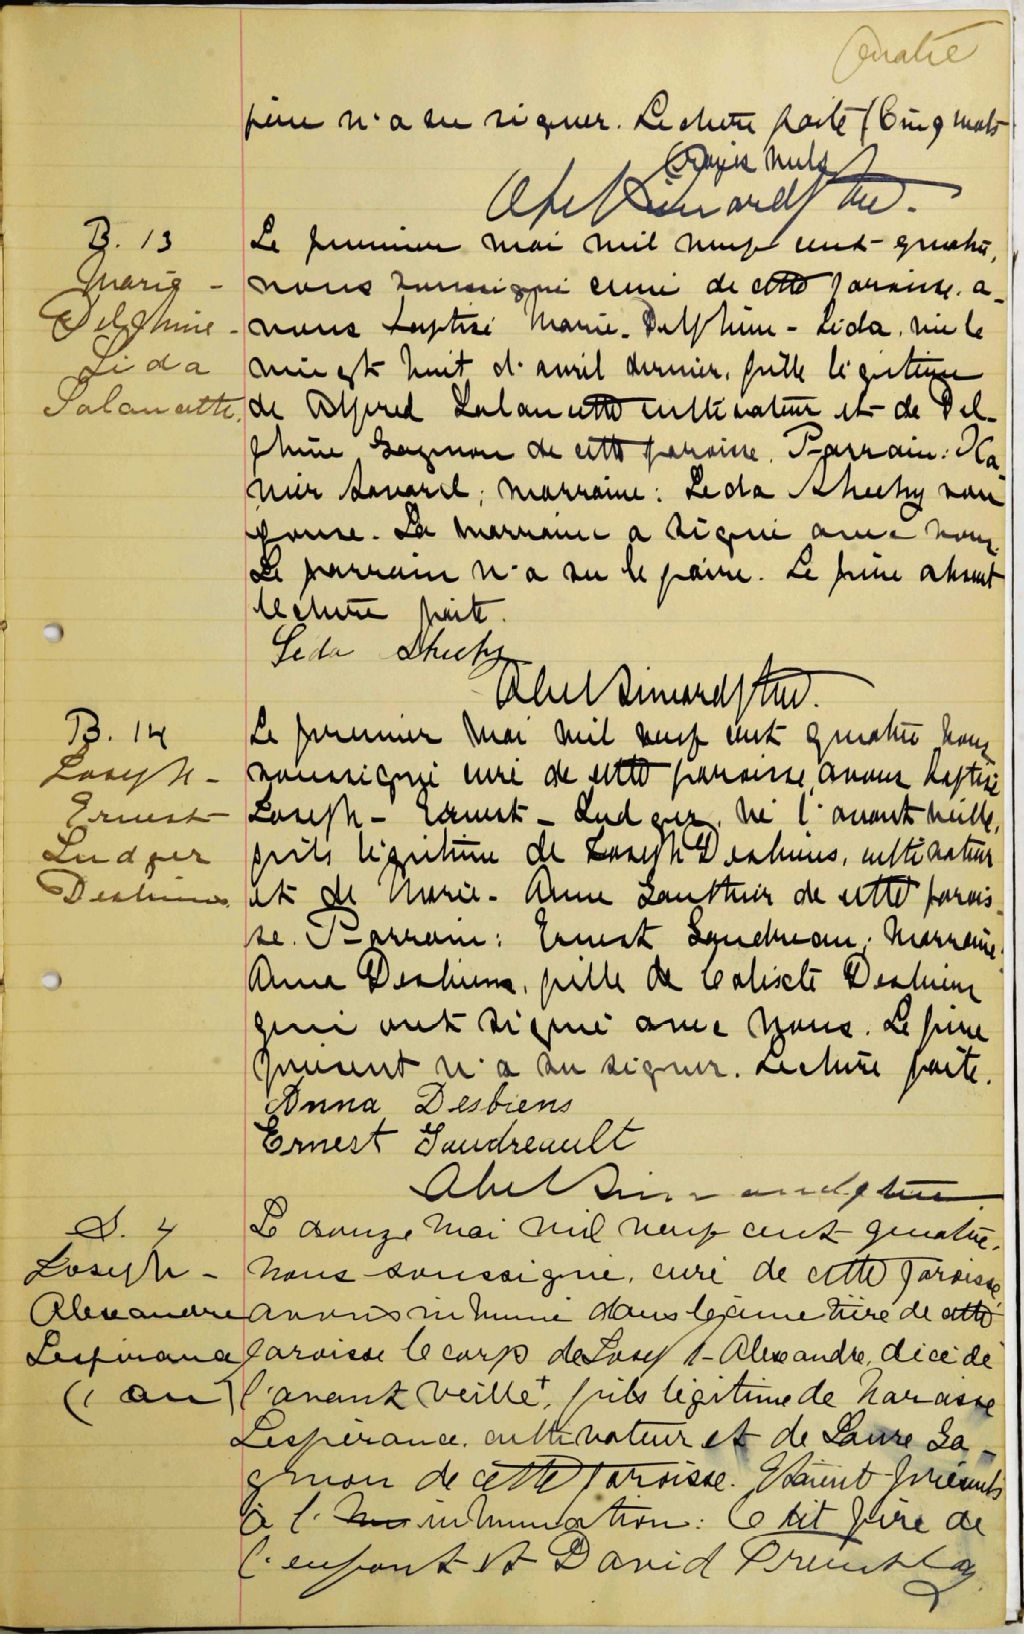 Quatre
père n'a su signer. Lecture faite (Cinq mots
rayés nuls
Abel Simard Ptre.
B. 13
Marie -
Delphine -
Lida
Lalancette.
Le premier mai mil neuf cent quatre,
nous soussigné curé de cette paroisse a-
vons baptisé Marie-Delphine-Lida, née le
vingt huit d'avril dernier, fille légitime
de Alfred Lalancette cultivateur et de Del-
phine Gagnon de cette paroisse. Parrain:
Savard; marraine: Leda Sheehy son
épouse. La marraine a signé avec nous.
Le parrain n'a su le faire. Le père absent
lecture faite.
Leda Sheehy
Abel Simard Ptre.
B. 14
Joseph -
Ernest
Ludger
Desbiens
Le premier mai mil neuf cent quatre nous
soussigné curé de cette paroisse, avons baptisé
Joseph - Ernest - Ludger, né l'avant veille,
fils légitime de Joseph Desbiens, cultivateur
et de Marie-Anne Gauthier de cette parois-
se. Parrain: Ernest Gaudreau; Marraine:
Anna Desbiens, fille de Calixte Desbiens
qui ont signé avec nous. Le père
présent n'a su signer. Lecture faite.
Anna Desbiens
Ernest Gaudreault
Abel Simard ptre
S. 4
Joseph -
Alexandre
Lespérance
(1 an)
Le douze mai mil neuf cent quatre,
nous soussigné, curé de cette paroisse,
avons inhumé dans le cimetière de cette
paroisse le corp de Joseph-Alexandre, décédé
l'avant veille+, fils légitime de Narcisse
Lespérance, cultivateur et de Laure Ga-
gnon de cette paroisse. Etaient présents
à l' inhumation: le dit père de
l'enfant et David Tremblay